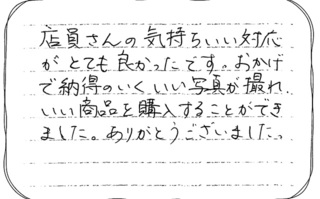 店員さんの気持ちいい対応
がとても良かったです。おかげ
で納得のいくいい写真が撮れ、
いい商品を購入することができ
ました。ありがとうございました。